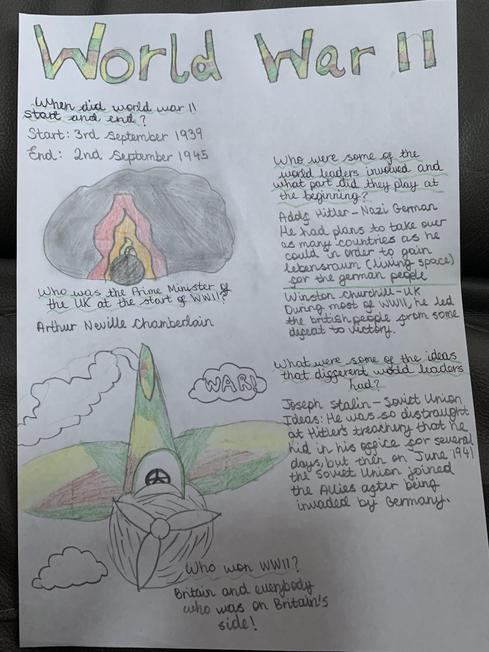 World War II
When did world war II
start and end?
Start: 3rd September 1939
End: 2nd September 1945
Who was the Prime Minister of
the UK at the start of WWII?
Arthur Neville Chamberlain
Who were some of the
world leaders involved and
what part did they play at
the beginning?
Hitler - Nazi German
He had plans to take over
as many countries as he
could in order to gain
lebensraum (living space)
for the german people
Winston Churchill - UK
During most of WWII, he led
the british people from some
defeat to victory.
What were some of the ideas
that different world leaders
had?
Joseph Stalin - Soviet Union
Ideas: He was so distraught
at Hitler's that he
hid in his office for several
days, but then on June 1941
the Soviet Union joined
the Allies after being
invaded by Germany.
WAR!
Who won WWII?
Britain and everybody
who was on Britain's
side!